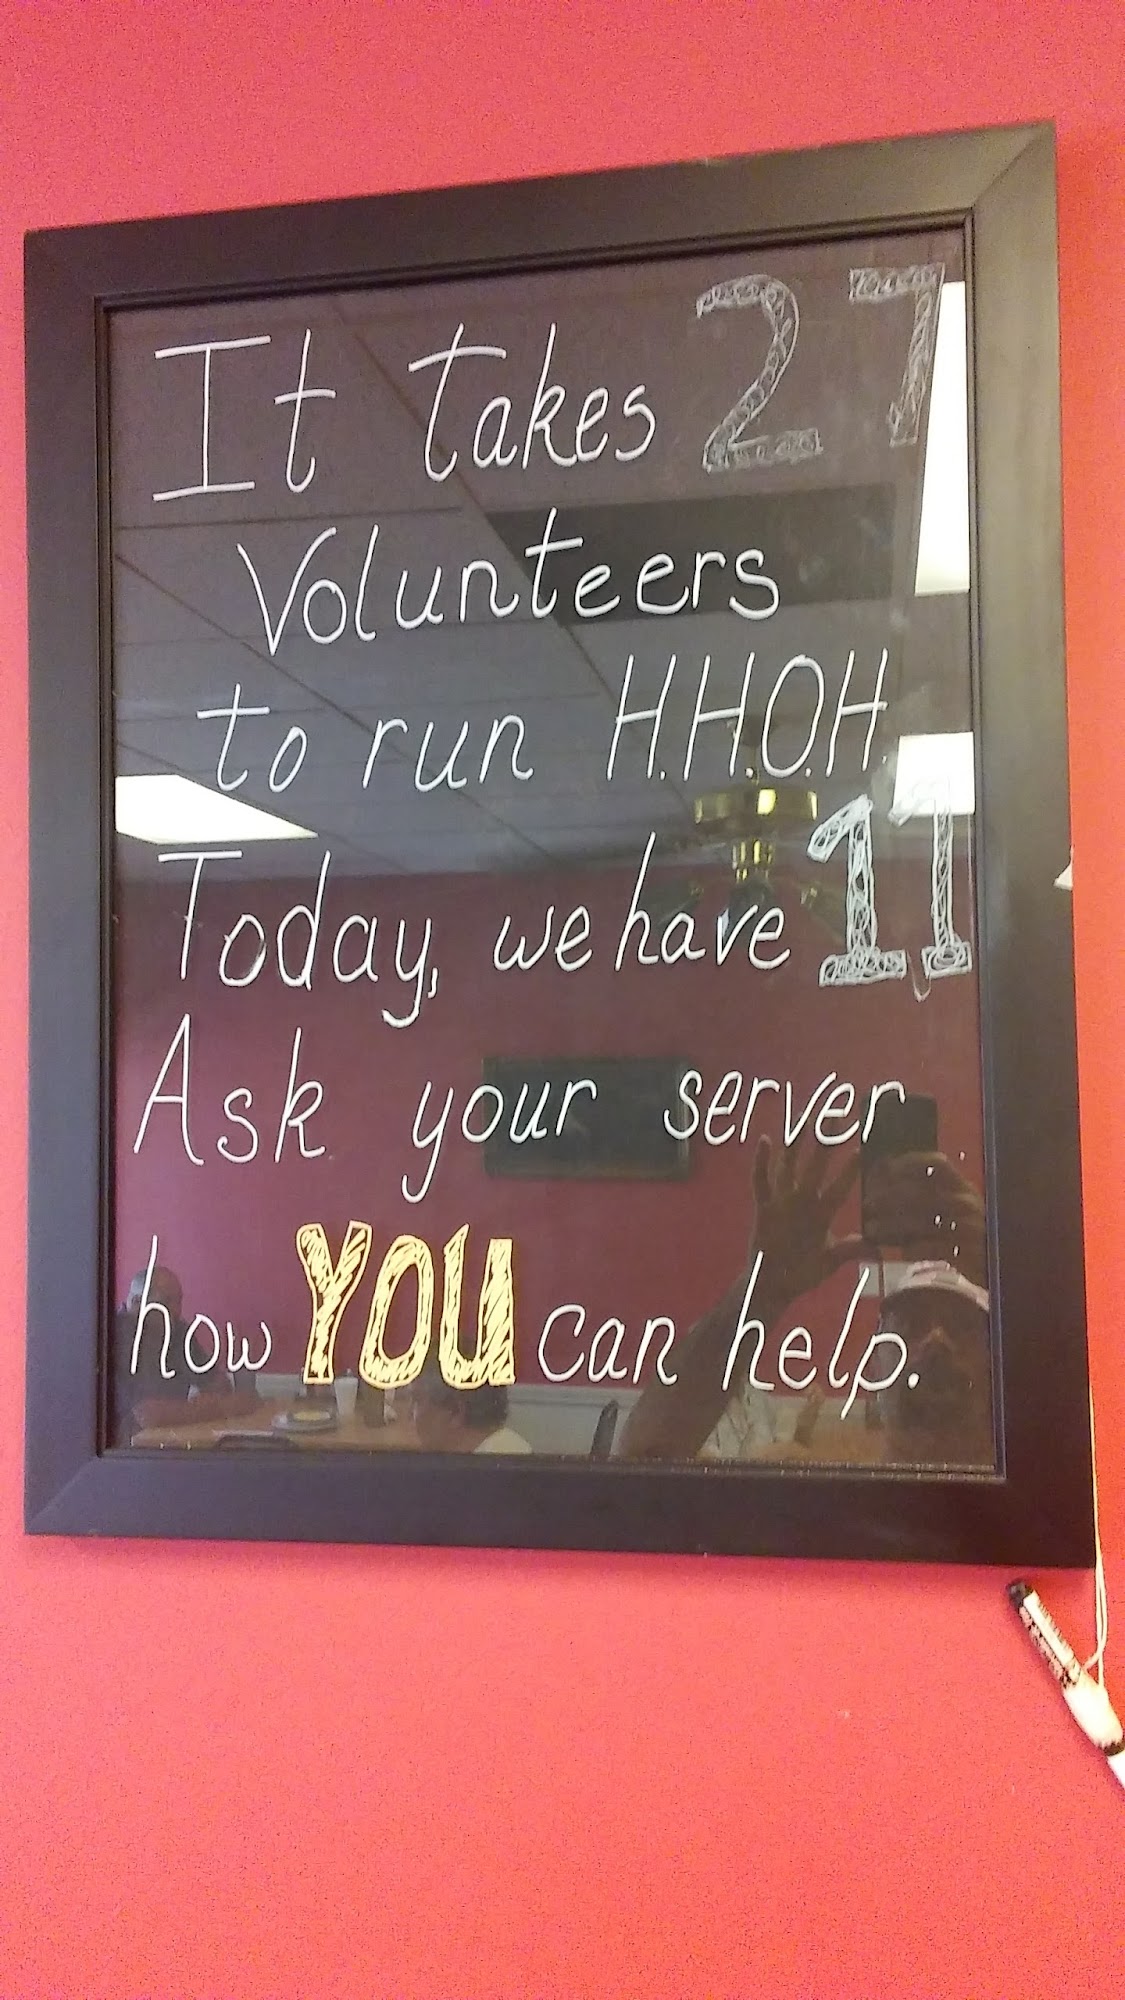 It takes 27
Volunteers
to run H.H.O.H.
Today, we have 11
Ask your server
how YOU can help.